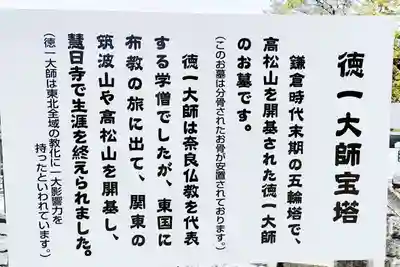 徳一大師宝塔
鎌倉時代末期の五輪塔で、
高松山を開基された徳一大師
のお墓です。
(このお墓は分骨されたお骨が安置されております。)
徳一大師は奈良仏教を代表
する学僧でしたが、東国に
布教の旅に出て、関東の
筑波山や高松山を開基し、
慧日寺で生涯を終えられました。
(徳一大師は東北全域の教化に一大影響力を
持ったといわれています。)